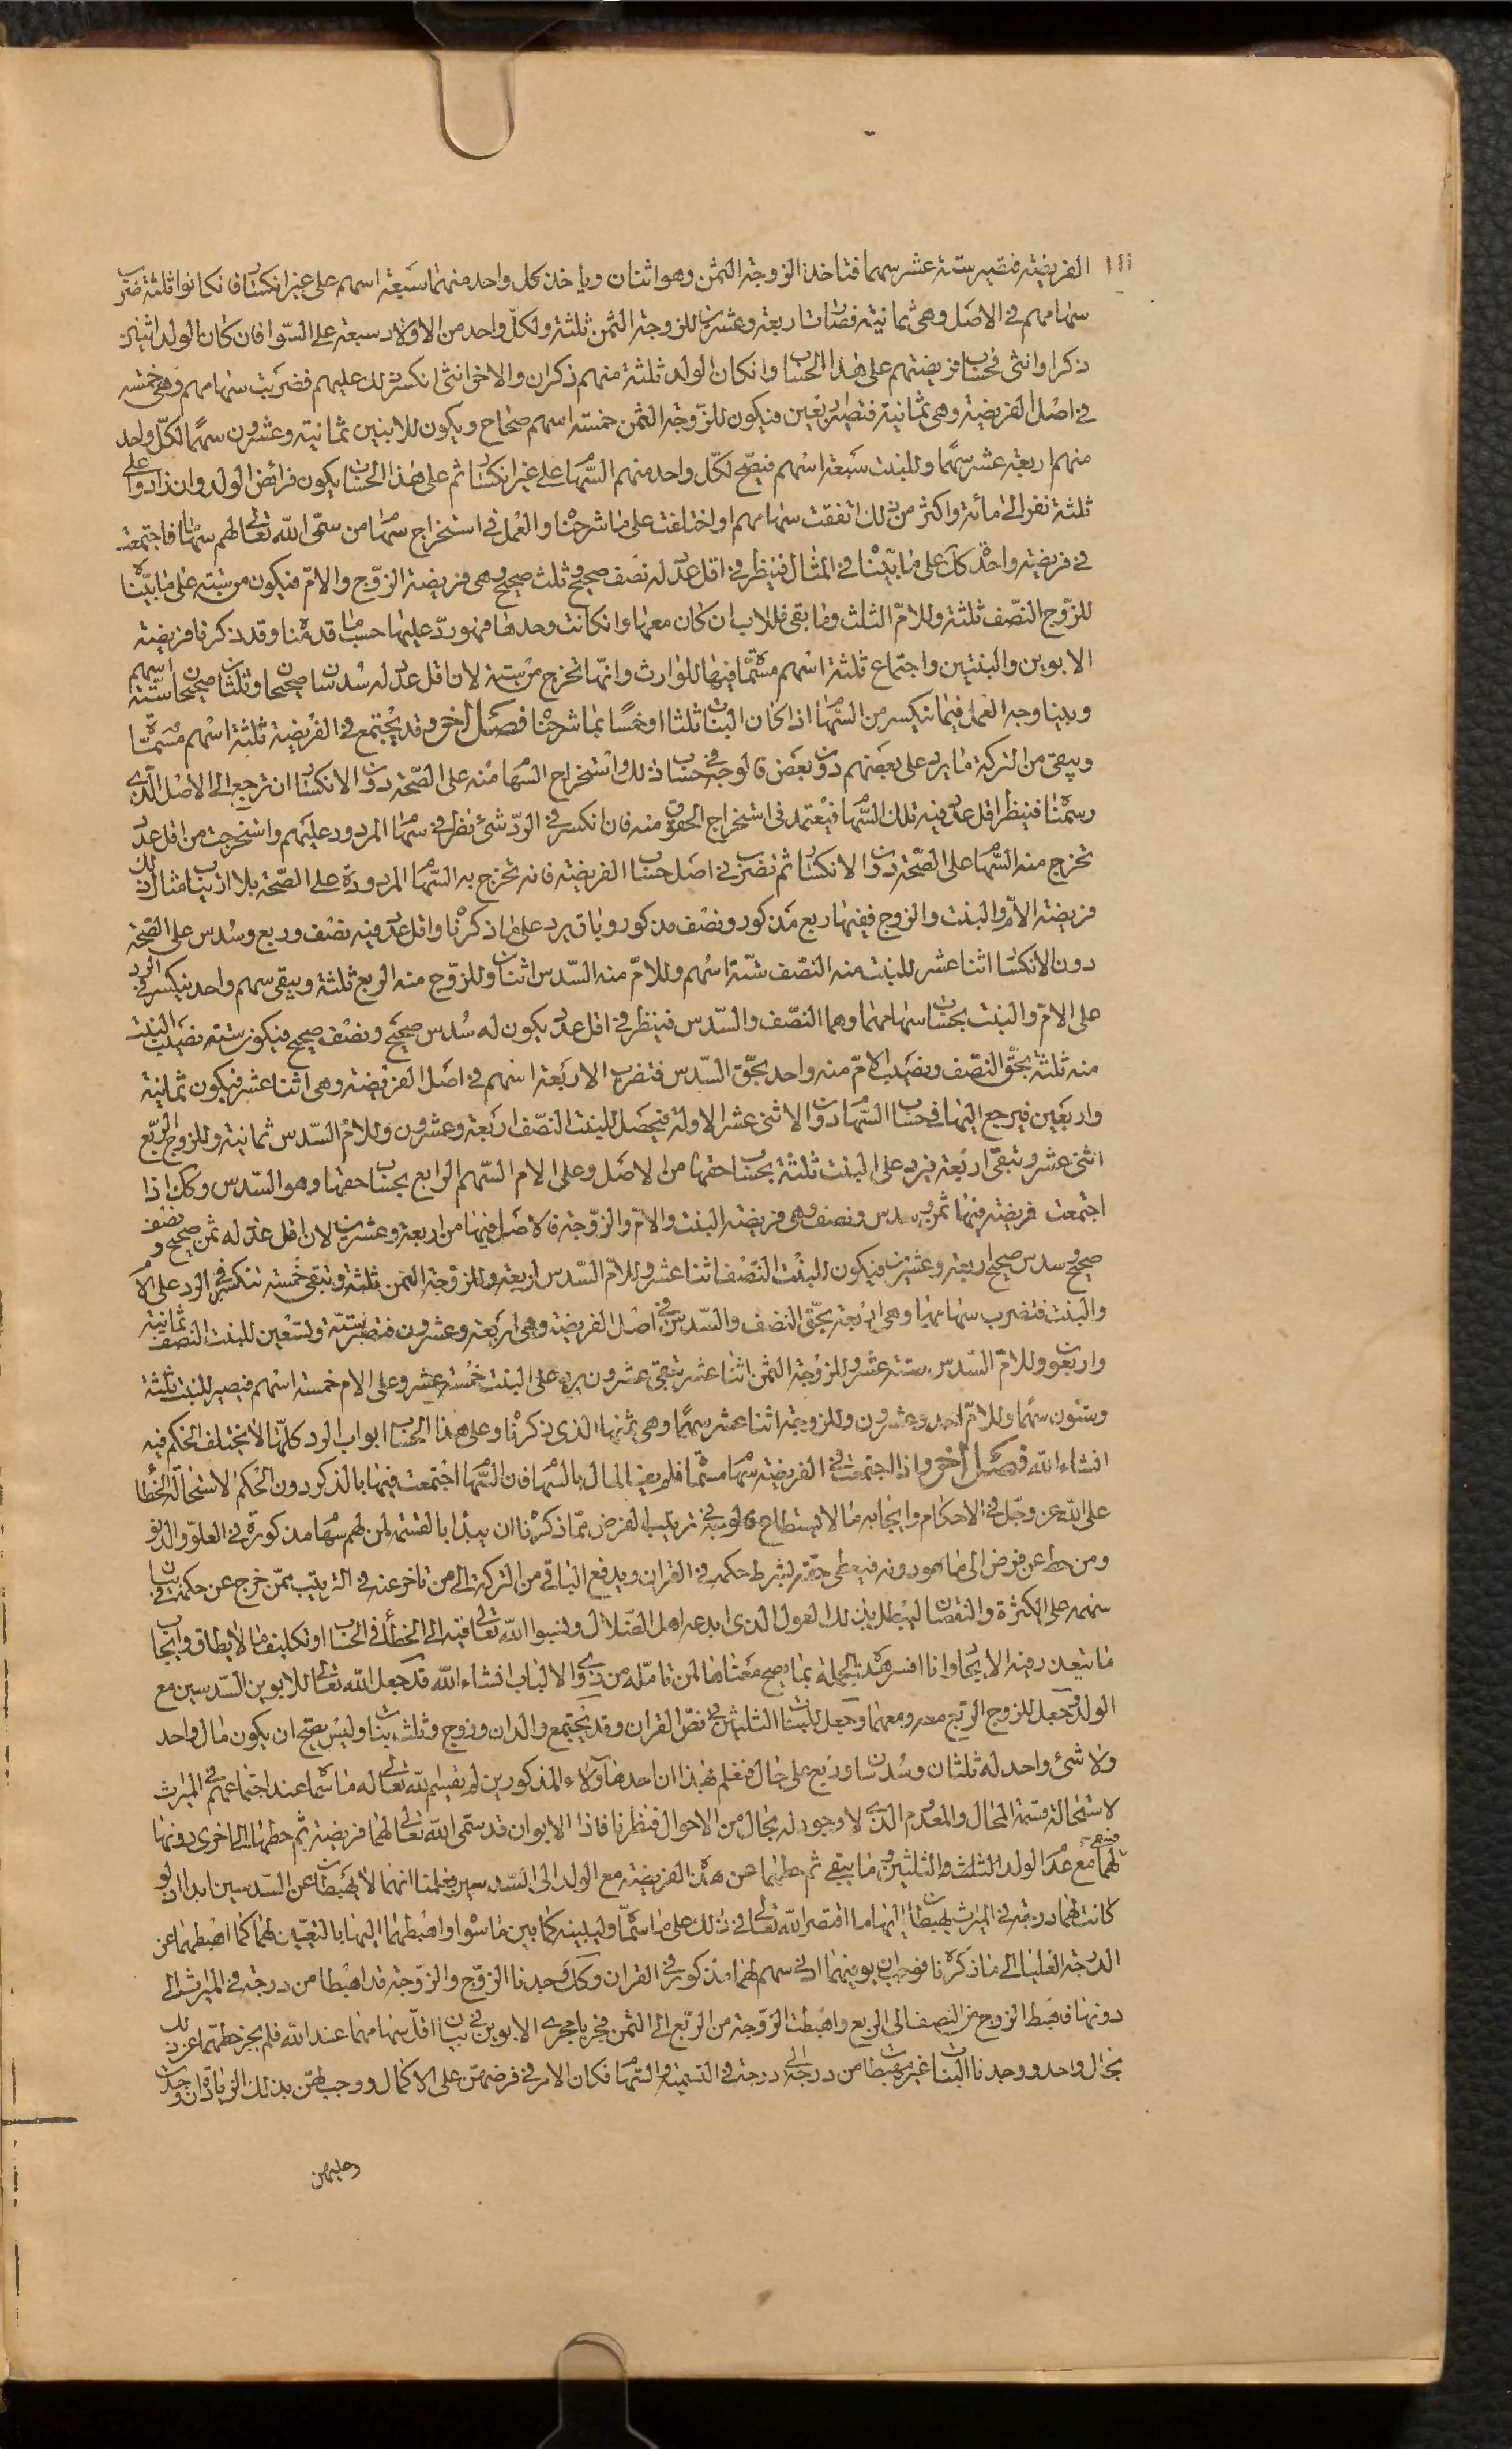 الفريضة فتصير ستة عشر سهما فتاخذ الزوجة الثمن وهو اثنان وياخذ كل واحد منهما سبعة اسهم على غير انكسار فان كانوا ثلثة ضرب
سهامهم في الاصل وهي ثمانية فصارت اربعة وعشرين للزوجة الثمن ثلثة ولكل واحد من الاولاد سبعة على السوا فان كان الولد اثنين
ذكرا وانثى فحساب فريضتهم على هذا الحساب وان كان الولد ثلثة منهم ذكران والاخر انثى انكسر ذلك عليهم فضربت سهامهم وهي خمسة
في اصل الفريضة وهي ثمانية فتصير اربعين فيكون للزوجة الثمن خمسة اسهم صحاح ويكون للابنين ثمانية وعشرون سهما لكل واحد
منهم اربعة عشر سهما وللبنت سبعة اسهم فيصح لكل واحد منهم السهام على غير انكسار ثم على هذا الحساب يكون فرائض الولد وان زادوا على
ثلثة نفر الى مائة واكثر من ذلك اتفقت سهامهم او اختلفت على ما شرحنا والعمل في استخراج سهام من سمى الله تعالى لهم سهاما فاجتمعت
في فريضة واحدة كل على ما بيّنا في المثال فينظر في اقل عدد له نصف صحيح وثلث صحيح وهي فريضة الزوج والام فيكون من ستة على ما بيّناه
للزوج النصف ثلثة وللام الثلث وما بقي فللاب ان كان معها وان كانت وحدها فهو ردّ عليها حسب ما قدمناه وقد ذكرنا فريضة
الابوين والبنتين واجتماع ثلثة اسهم مسماة فيها للوارث وانها تخرج من ستة لان اقل عدد له سدسان صحيحان وثلثان صحيحان ستة اسهم
وبينا وجه العمل فيما ينكسر من السهام اذا كان البنات ثلثا او خمسا بما شرحنا فصل اخر وقد يجتمع في الفريضة ثلثة اسهم مسماة
ويبقى من التركة ما يرد على بعضهم دون بعض فالوجه في حساب ذلك واستخراج السهام منه على الصحة دون الانكسار ان ترجع الى الاصل الذي
رسمناه فينظر اقل عدد فيه تلك السهام فيعتمد في استخراج الحقوق منه فان انكسر في الرد شئ نظر في سهام المردود عليهم واستخرجت من اقل عدد
تخرج منه السهام على الصحة دون الانكسار ثم تضرب في اصل حساب الفريضة فانه تخرج به السهام المردودة على الصحة بلا ارتياب مثال ذلك
فريضة الام والبنت والزوج ففيها ربع مذكور ونصف مذكور وباق يرد على ما ذكرنا واقل عدد فيه نصف وربع وسدس على الصحة
دون الانكسار اثنا عشر للبنت منه النصف ستة اسهم وللام منه السدس اثنان وللزوج منه الربع ثلثة ويبقى سهم واحد ينكسر في الرد
على الام والبنت بحساب سهامهما وهما النصف والسدس فينظر في اقل عدد يكون له سدس صحيح ونصف صحيح فيكون ستة نصيب البنت
منه ثلثة بحق النصف ونصيب الام منه واحد بحق السدس فتضرب الاربعة اسهم في اصل الفريضة وهي اثنا عشر فيكون ثمانية
واربعين فيرجع اليها في حساب السهام دون الاثنى عشر الاولة فيحصل للبنت النصف اربعة وعشرون وللام السدس ثمانية وللزوج الربع
اثنى عشر وتبقى اربعة فيرد على البنت ثلثة بحساب حقها من الاصل وعلى الام السهم الرابع بحساب حقها وهو السدس وكك اذا
اجتمعت فريضة فيها ثمن وسدس ونصف وهي فريضة البنت والام والزوجة فالاصل فيها من اربعة وعشرين لان اقل عدد له ثمن صحيح ونصف
صحيح وسدس صحيح اربعة وعشرين فيكون للبنت النصف اثنا عشر وللام السدس اربعة وللزوجة الثمن ثلثة وتبقى خمسة تنكسر في الرد على الام
والبنت فتضرب سهامهما وهي اربعة بحق النصف والسدس في اصل الفريضة وهي اربعة وعشرون فتصير ستة وتسعين للبنت النصف ثمانية
واربعون وللام السدس ستة عشر وللزوجة الثمن اثنا عشر تبقى عشرون يرد على البنت خمسة عشر وعلى الام خمسة اسهم فيصير للبنت ثلثة
وستون سهما وللام احد وعشرون وللزوجة اثنا عشر سهما وهي ثمنها الذي ذكرنا وعلى هذا الحساب ابواب الرد كلها لا يختلف الحكم فيه
انشاء الله فصل اخر واذا اجتمعت في الفريضة سهام مسماة فلم يف المال بالسهام فان السهام اجتمعت فيها بالذكر دون الحكم لاستحالة الخطا
على الله عز وجل في الاحكام وايجابه ما لا يستطاع فالوجه في ترتيب الفرض مما ذكرنا ان يبدا بالقسمة لمن لهم سهام مذكورة في العلو والدنو
ومن حط عن فرض الى ما هو دونه فيعطى حقه بشرط حكمه في القران ويدفع الباقي من التركة الى من تاخر عنه في الترتيب ممن خرج عن حكمه في بيان
سهمه على الكثرة والنقصان ليبطل بذلك القول الذي ابدعه اهل الضلال ونسبوا الله تعالى فيه الى الخطأ في الحساب او تكليف ما لا يطاق وايجاب
ما يتعذر فيه الايجاب وانا افسر هذه الجملة بما يصح معناها لمن تامله من ذوي الالباب انشاء الله قد جعل الله تعالى للابوين السدسين مع
الولد وجعل للزوج الربع معه ومعهما وجعل للبنات الثلثين في نص القران وقد يجتمع والدان وزوج وثلاث بنات وليس يصح ان يكون مال واحد
ولا شئ واحد له ثلثان وسدسان وربع على حال فنعلم بهذا ان احد هؤلاء المذكورين لم يقسم الله تعالى له ما سماه عند اجتماعهم في الميراث
لاستحالة قسمة المحال والمعدوم الذي لا وجود له بحال من الاحوال فنظرنا فاذا الابوان قد سمى الله تعالى لهما فريضة ثم حطهما الى اخرى دونها
فسمى لهما مع عدم الولد الثلث والثلثين وما يبقى ثم حطهما عن هذه الفريضة مع الولد الى السدسين فعلمنا انهما لا يهبطان عن السدسين ابدا اذ لو
كانت لهما درجة في الميراث يهبطان اليها ما اقتصر الله تعالى في ذلك على ما سماه وليبينه كما بين ما سواه واهبطهما اليها بالتعيين لهما كما اهبطهما عن
الدرجة العليا الى ما ذكرناه فوجب ان يوفيهما ادنى سهم لهما مذكور في القران وكك وجدنا الزوج والزوجة قد اهبطا من درجة في الميراث الى
دونها فاهبط الزوج من النصف الى الربع واهبطت الزوجة من الربع الى الثمن فجريا مجرى الابوين في بيان اقل سهامهما عند الله فلم يجز حطهما عن ذلك
بحال واحد ووجدنا البنات غير مهبطات من درجة الى درجة في التسمية والسهام فكان الامر في فرضهن على الاكمال ووجب لهن بذلك الزيادة ان وجدت
وعليهن